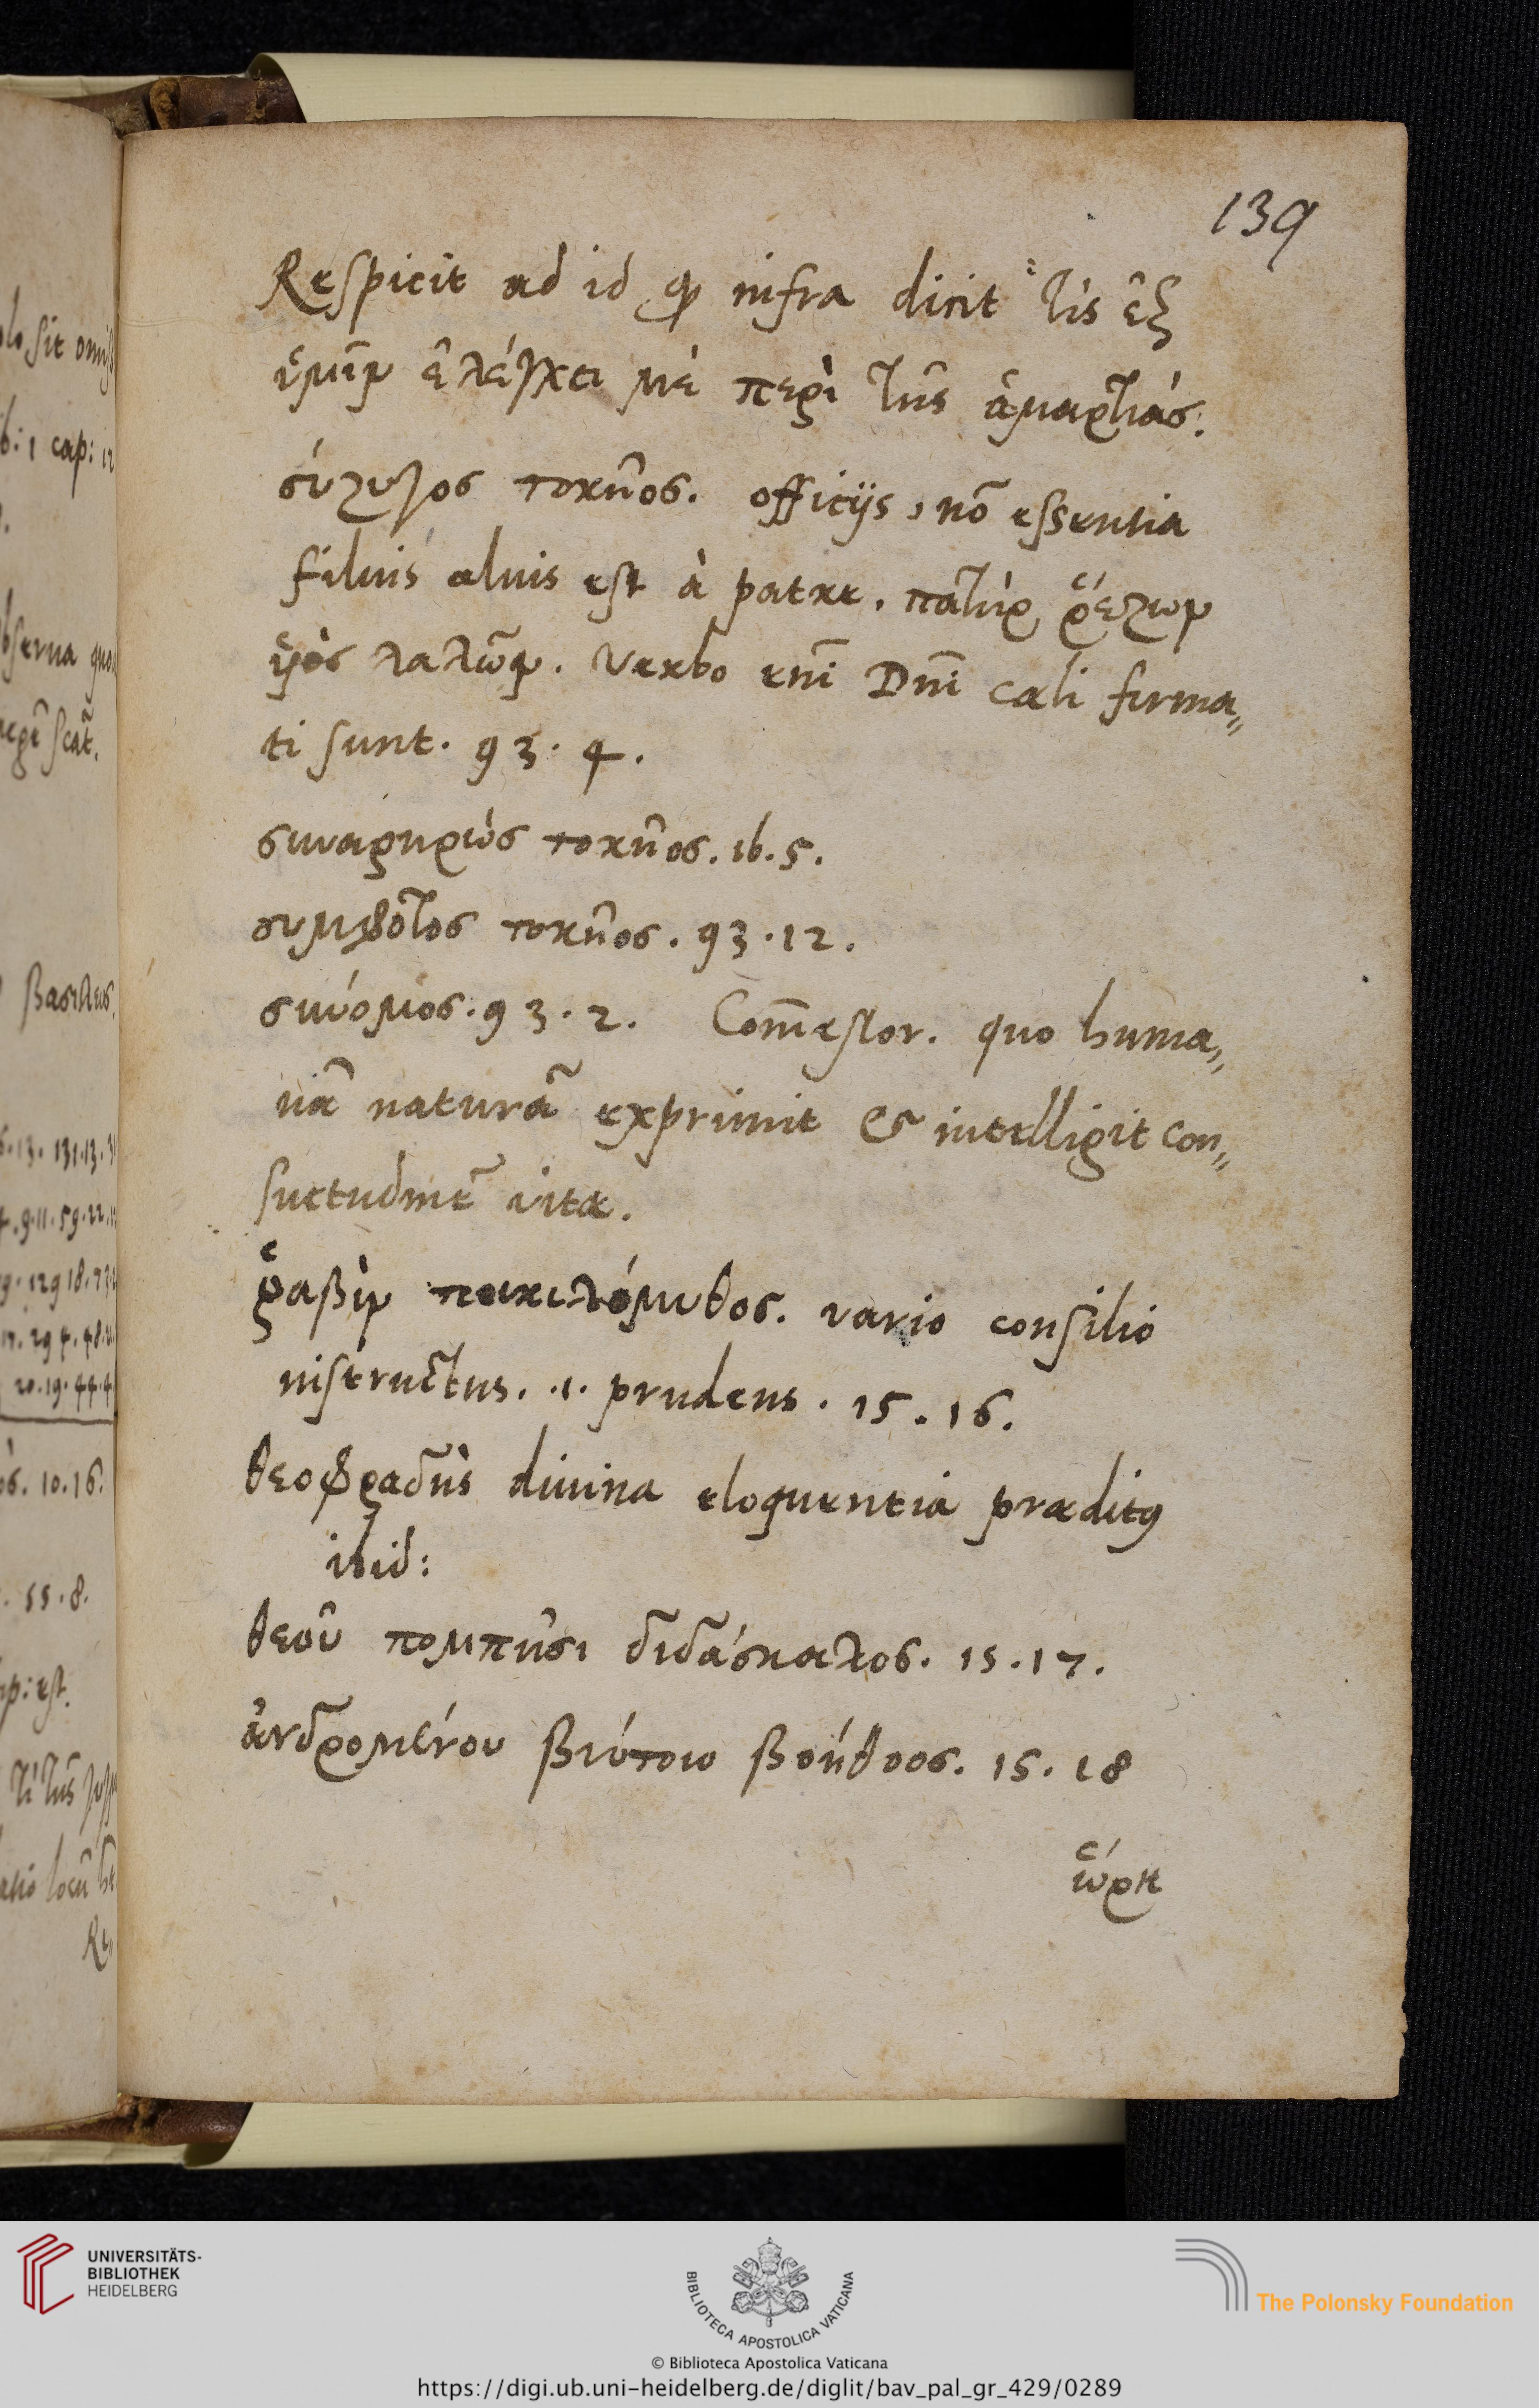 139
Respicit ad id qđ infra dicit τὶς ἐξ
ὑμῶν ἐλέγχει μὲ περὶ τῆς ἁμαρτίας.
σύζυγος τοκῆος. officijs, nō essentia
filius alius est à patre. πατὴρ ῥέζων
υἱὸς λαλῶν. Verbo eni͂ Dni͂ cæli firma„
ti sunt. 93. 4.
συναρηρὼς τοκῆος. ib. 5.
τοκῆος. 93. 12.
σύνομος. 93. 2. Com̄estor. quo huma„
nā naturā exprimit & intelligit con„
suetudinē vitæ.
ῥαβὶν ποικιλόμυθος. vario consilio
instructus. .i. prudens. 15. 16.
θεοφραδὴς diuina eloquentia præditꝰ
ibid:
θεοῦ πομπῆσι διδάσκαλος. 15. 17.
ἀνδρομένου βιότοιο βοήθοος. 15. 18
ὥρη
lo sit
b: 1 cap: 12
obserua quo
scāt.
βασιλεὺς.
13. 131. 13.
9. 11. 59. 22.
129 18.
29 4. 48.
20. 19. 44. 4
10. 16.
55. 8.
p: est.
τῆς
locū
Re„
UNIVERSITÄTS-
BIBLIOTHEK
HEIDELBERG
BIBLIOTECA APOSTOLICA VATICANA
The Polonsky Foundation
© Biblioteca Apostolica Vaticana
https://digi.ub.uni-heidelberg.de/diglit/bav_pal_gr_429/0289